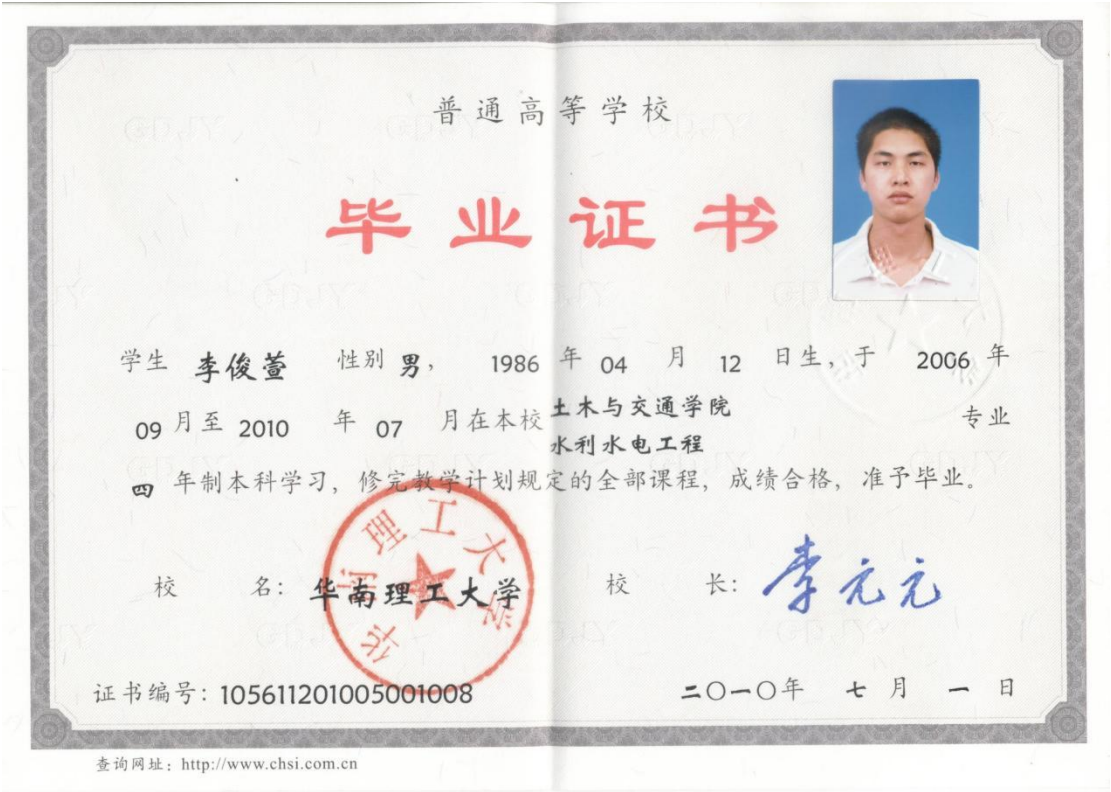 普通高等学校
毕业证书
学生 李俊萱 性别 男， 1986 年 04 月 12 日生，于 2006 年
09 月至 2010 年 07 月在本校 土木与交通学院 水利水电工程 专业
四 年制本科学习，修完教学计划规定的全部课程，成绩合格，准予毕业。
华南理工大学
校 名：华南理工大学 校 长：李元元
证书编号：105611201005001008 二〇一〇年 七 月 一 日
查询网址：http://www.chsi.com.cn